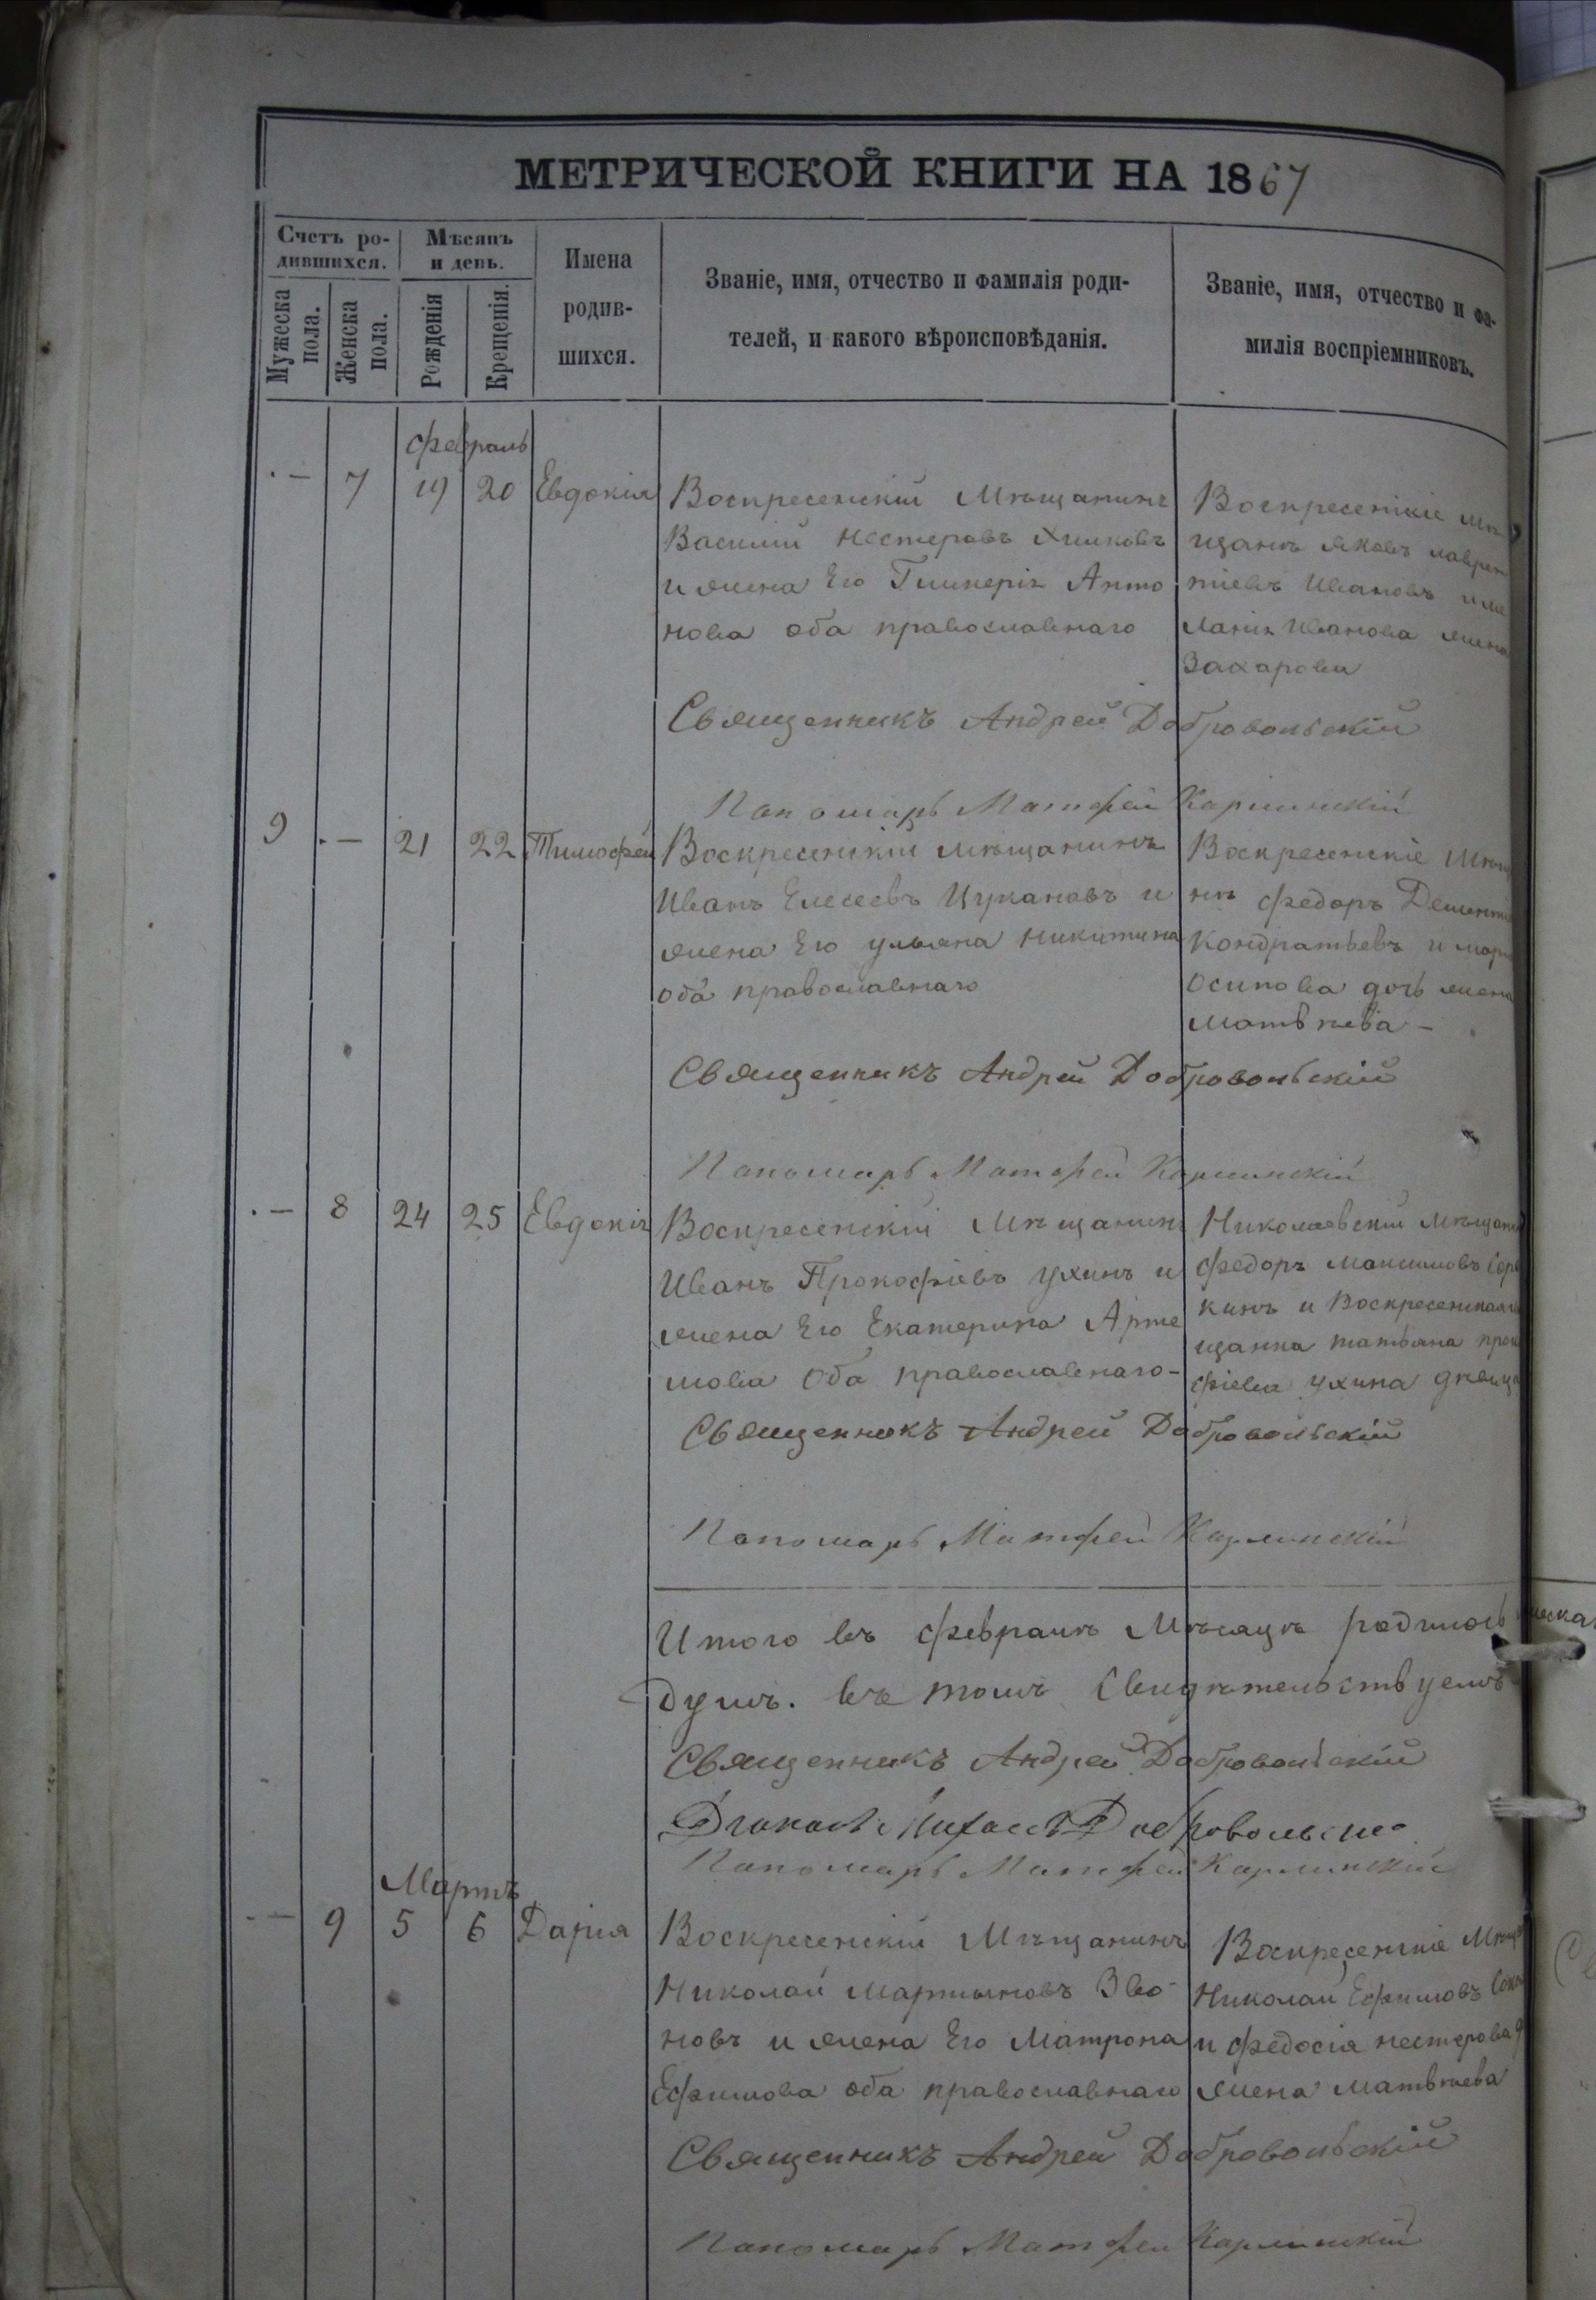 МЕТРИЧЕСКОЙ КНИГИ НА 1867
Счетъ ро-
дившихся.
Мѣсяцъ
и день.
Имена
родив-
шихся.
Званіе, имя, отчество и фамилія роди-
телей, и какого вѣроисповѣданія.
Званіе, имя, отчество и фа-
милія воспріемниковъ.
Мужеска
пола.
Женска
пола.
Рожденія
Крещенія.
февраль
— 7 19 20 Евдокія
Воскресенскій Мѣщанинъ
Василій Нестеровъ Химковъ
и жена Его Гликерія Анто
нова оба православнаго
Воскресенскіе мѣ
щане яковъ лаврен
тіевъ Ивановъ и ме
ланія Иванова жена
Захарова
Священникъ Андрей Добровольскій
Пономарь Матфей Карлинскій
9 — 21 22 Тимофей
Воскресенскій мѣщанинъ
Иванъ Елесеевъ Цукановъ и
жена Его ульяна никитина
оба православнаго
Воскресенскіе Мѣща
не федоръ Дементь
Кондратьевъ и марѳ
Осипова дочь жена
матвѣева —
Священникъ Андрей Добровольскій
Пономарь Матфей Карлинскій
— 8 24 25 Евдокія
Воскресенскій Мѣщанинъ
Иванъ Прокофіевъ ухинъ и
жена Его Екатерина Арте
мова Оба православнаго —
Николаевскій мѣщани
федоръ максимовъ Соро
кинъ и Воскресенская мѣ
щанка татьяна проко
фіева ухина дѣвица
Священникъ Андрей Добровольскій
Пономарь Матфей Карлинскій
Итого въ февралѣ Мѣсяцѣ родилось
душъ. въ томъ Свидѣтельствуемъ
Священникъ Андрей Добровольскій
Діаконъ Добровольскій
Пономарь Матфей Карлинскій
Мартъ
— 9 5 6 Дарія
Воскресенскій Мѣщанинъ
Николай мартыновъ Зво-
новъ и жена Его Матрона
Ефимова оба православнаго
Воскресенскіе Мѣща
Николай Ефимовъ
и федосія нестерова
жена матвѣева
Священникъ Андрей Добровольскій
Пономарь Матфей Карлинскій